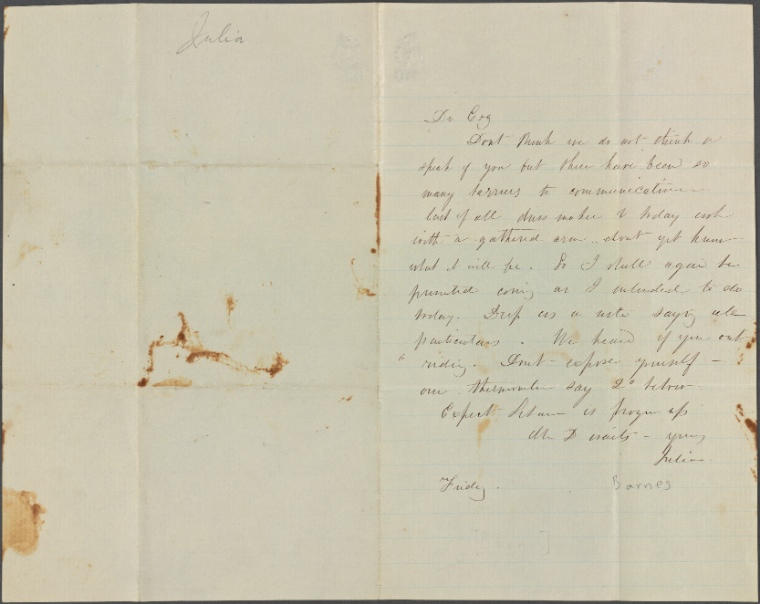 Julia
Dont think we do not think or
speak of you but there have been so
many barriers to communication
last of all dress maker & today cook
with a gathered arm .. dont yet know
what it will be. So I shall again be
prevented coming as I intended to do
today. Drop us a note saying all
particulars. We heard of you out
riding. Dont expose yourself –
our thermometer say 2° below
Expect is frozen up
Mr D waits – yours
Julia
Friday.
Barnes